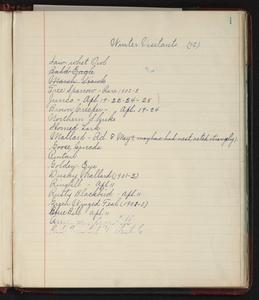 1
Winter Visitants (92)
Saw-whet Owl
Bald Eagle
Marsh Hawk
Tree Sparrow - Rare 1902-3
Junco - Apl. 19-22-24-25
Brown Creeper - " Apl. 19-24
Northern Shrike
Horned Lark
Mallard - Ad. & may have had nest, acted strangely.
Goose Canada
Pintail
Golden-Eye
Dusky Mallard (1901-2)
Ringbill - Apl 11
Rusty Blackbird - Apl 11
Green Winged Teal (1902-3)
Blue Bill Apl 11